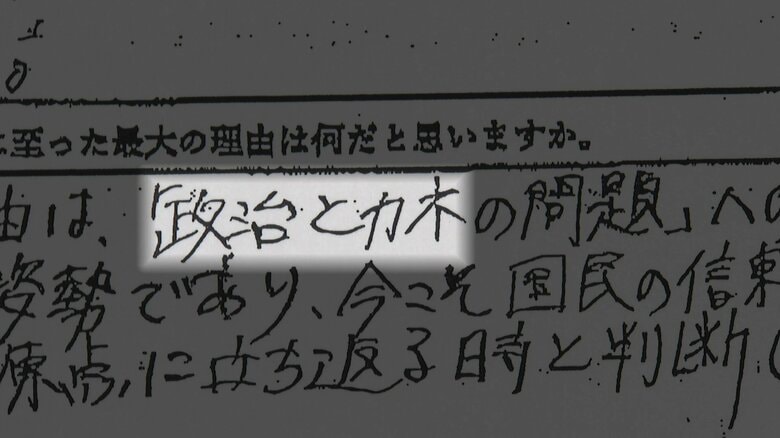 に至った最大の理由は何だと思いますか。
由は、「政治とカネの問題」への
姿勢であり、今こそ国民の信頼
原点に立ち返る時と判断し